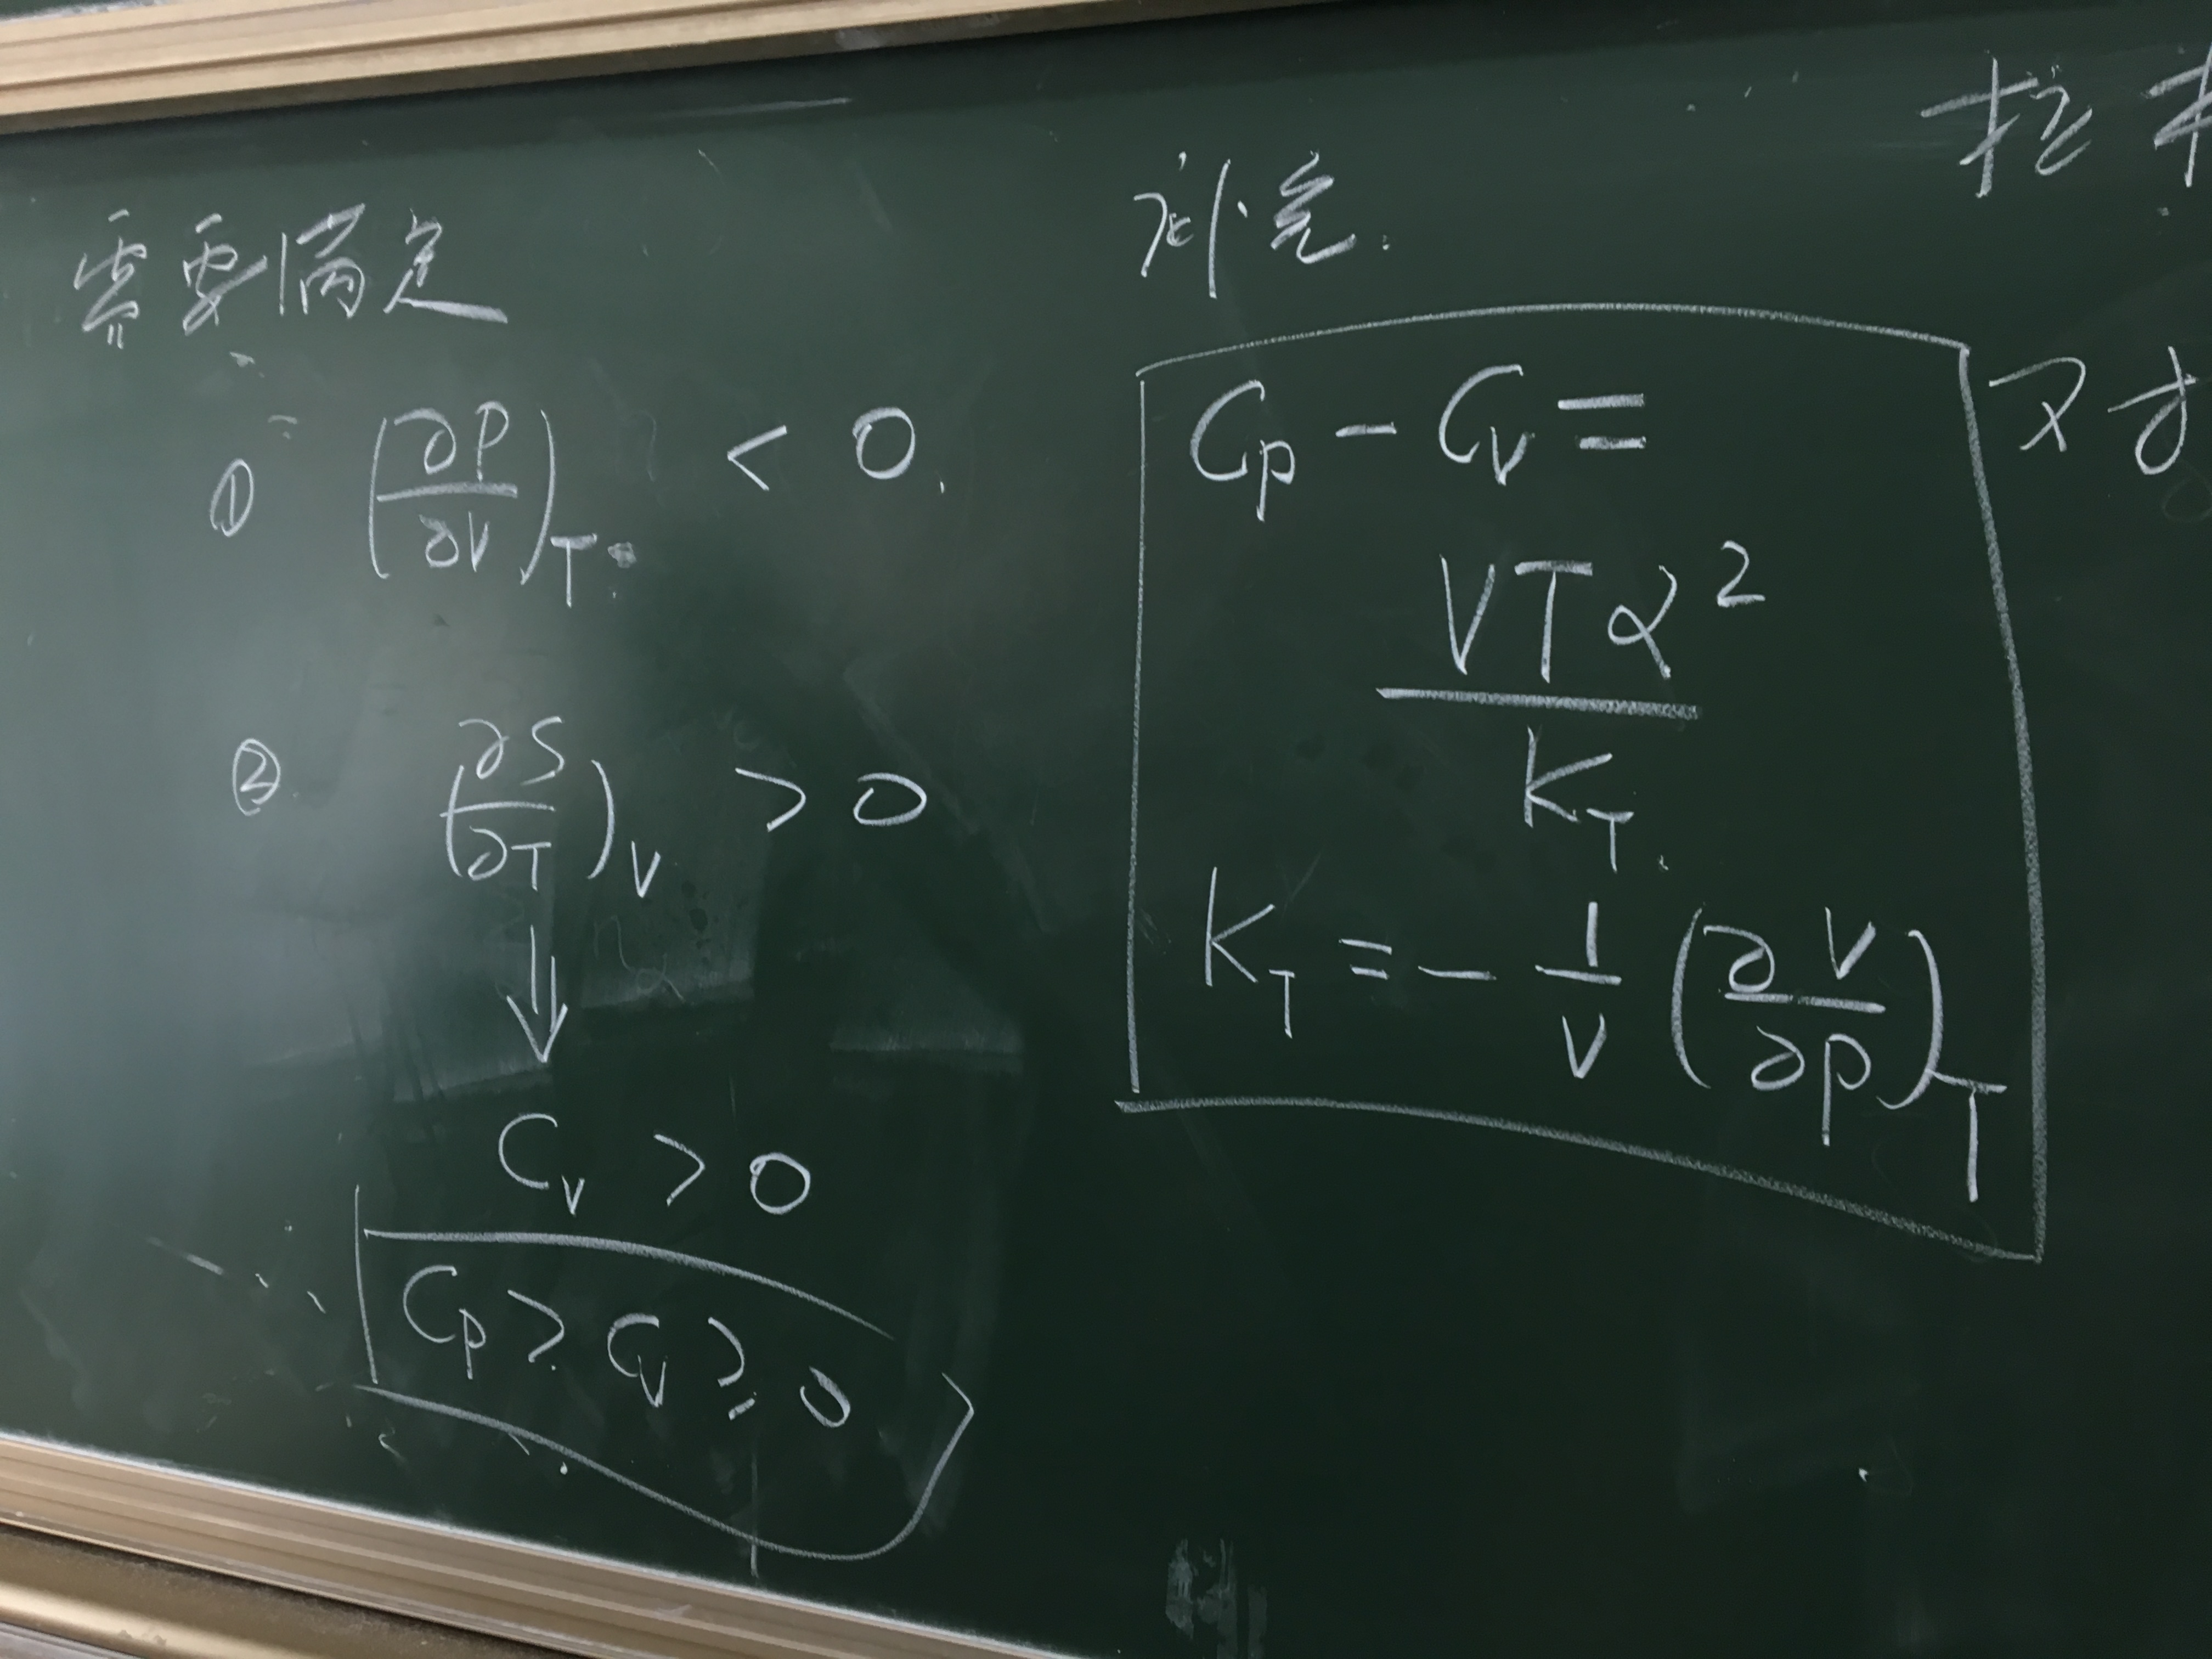 需要满足
① (∂P/∂V)_T < 0
② (∂S/∂T)_V > 0
⇓
C_V > 0
C_P ≥ C_V ≥ 0
补充:
C_P - C_V =
VTα²/K_T
K_T = - 1/V (∂V/∂P)_T
又